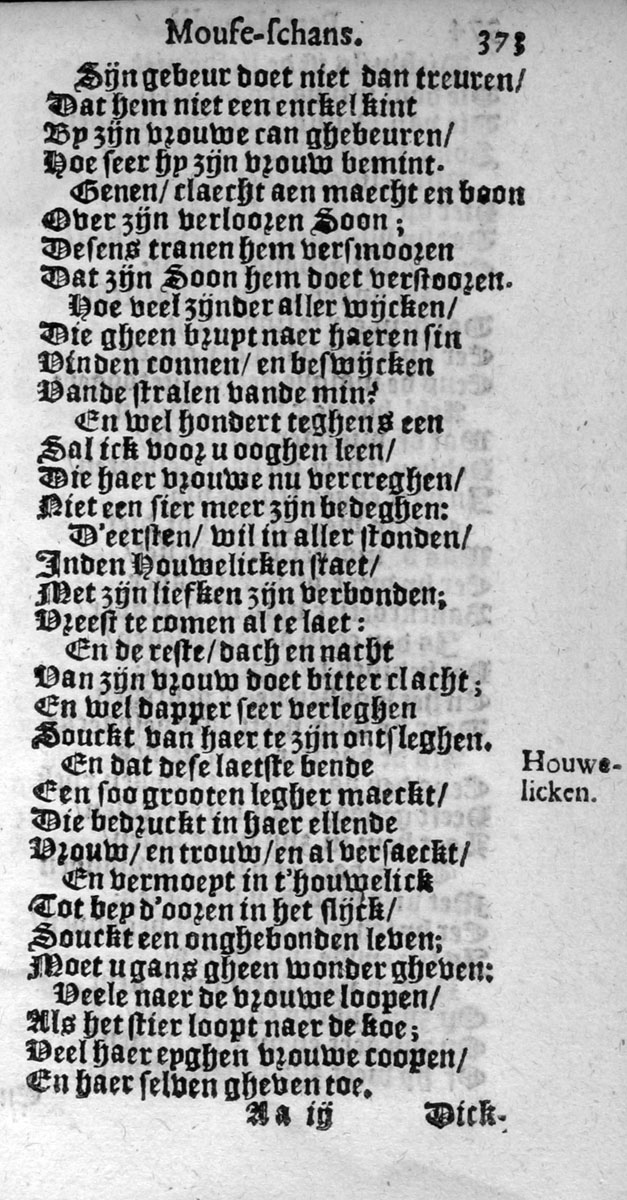 Mouse-schans. 373
Sijn gebeur doet niet dan treuren/
Dat hem niet een enckel kint
By zijn vrouwe can ghebeuren/
Hoe seer hy zijn vrouw bemint.
Genen/ claecht aen maecht en boon
Over zijn verlooren Soon;
Desens tranen hem versmooren
Dat zijn Soon hem doet verstooren.
Hoe veel zijnder aller wijcken/
Die gheen bruyt naer haeren sin
Vinden connen/ en beswijcken
Vande stralen vande min?
En wel hondert teghens een
Sal ick voor u ooghen leen/
Die haer vrouwe nu vercreghen/
Niet een sier meer zijn bedeghen:
D'eersten/ wil in aller stonden/
Inden Houwelicken staet/
Met zijn liefken zijn verbonden;
Vreest te comen al te laet:
En de reste/ dach en nacht
Van zijn vrouw doet bitter clacht;
En wel dapper seer verleghen
Souckt van haer te zijn ontsleghen.
En dat dese laetste bende
Een soo grooten legher maeckt/
Die bedruckt in haer ellende
Vrouw/ en trouw/ en al versaeckt/
En vermoeyt in t'houwelick
Tot bey d'ooren in het slijck/
Souckt een onghebonden leven;
Moet u gans gheen wonder gheven:
Veele naer de vrouwe loopen/
Als het stier loopt naer de koe;
Veel haer eyghen vrouwe coopen/
En haer selven gheven toe.
Aa ij Dick-
Houwe-
licken.